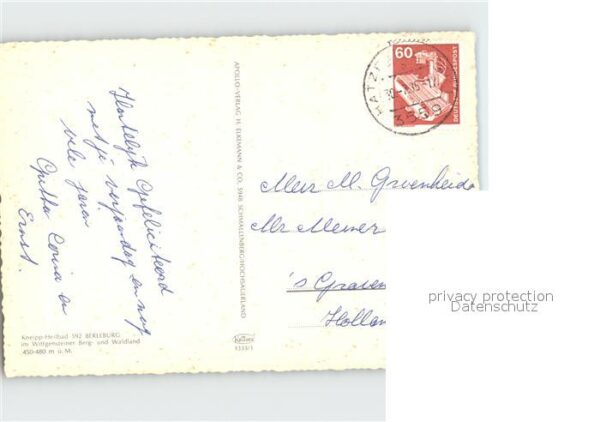 Hartelijk Gefeliciteerd
met je verjaardag en nog
vele jaren
Gutta Corina en
Ernst.
Kneipp-Heilbad 592 BERLEBURG
im Wittgensteiner Berg- und Waldland
450-480 m ü. M.
APOLLO-VERLAG H. EIKEMANN & CO. 5948 SCHMALLENBERG/HOCHSAUERLAND
5333/1
60
DEUTSCHE BUNDESPOST
HATZF
3559
Mevr M. Groenheide
Mr
's Graven
Hollan
privacy protection
Datenschutz